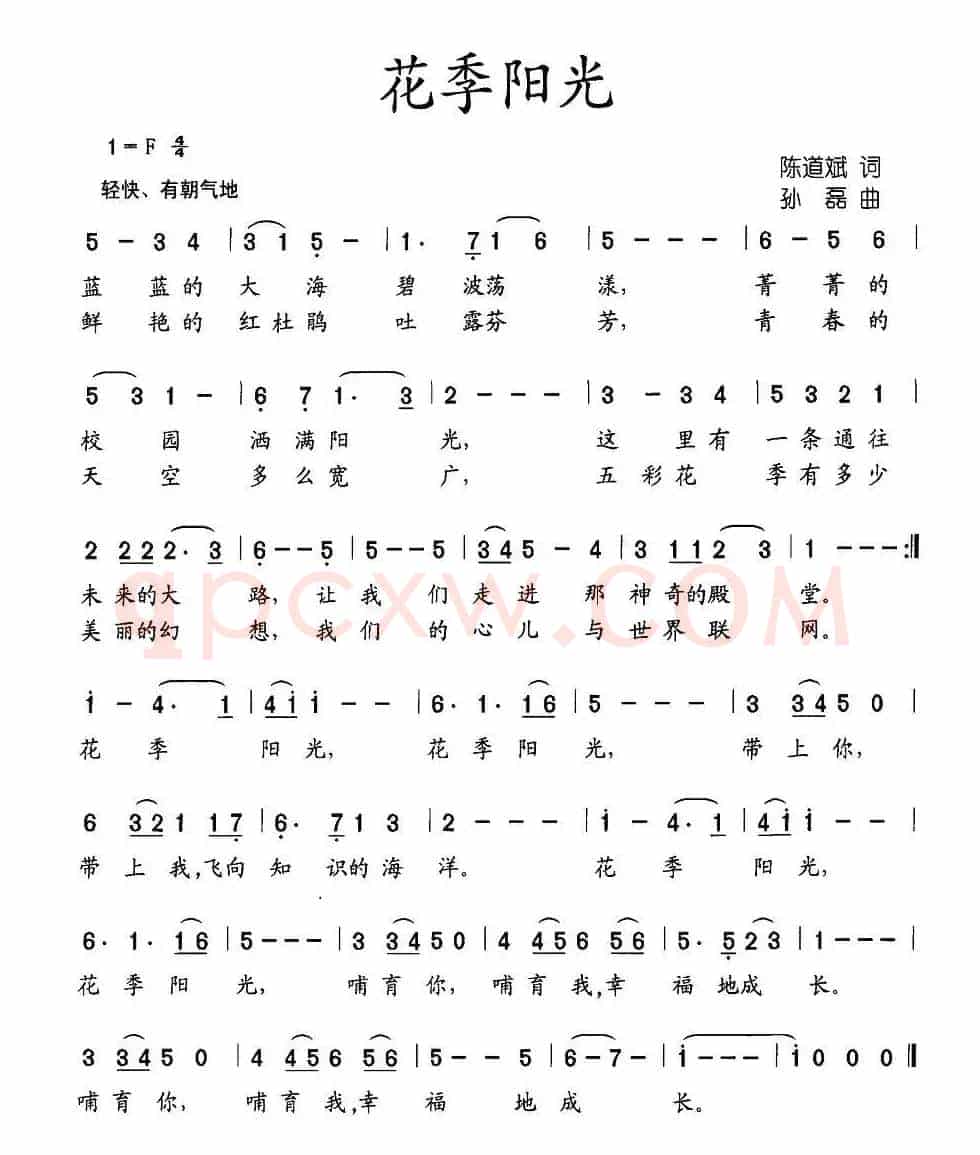 花季阳光
1=F 4/4
陈道斌 词
轻快、有朝气地
孙 磊 曲
5 - 3 4 | 3 1 5 - | 1· 7 1 6 | 5 - - - | 6 - 5 6 |
蓝 蓝的 大 海 碧 波荡 漾, 菁 菁的
鲜 艳的 红杜鹃 吐 露芬 芳, 青 春的
5 3 1 - | 6 7 1· 3 | 2 - - - | 3 - 3 4 | 5 3 2 1 |
校 园 洒满阳 光, 这 里有 一条通往
天 空 多么宽 广, 五 彩花 季有多少
2 2 2 2 2· 3 | 6 - - 5 | 5 - - 5 | 3 4 5 - 4 | 3 1 1 2 3 | 1 - - - :‖
未来的大 路, 让我 们走进 那神奇的殿 堂。
美丽的幻 想, 我们 的心儿 与世界联 网。
i - 4· 1 | 4 i i - - | 6· 1· 1 6 | 5 - - - | 3 3 4 5 0 |
花 季 阳光, 花季阳 光, 带上你,
6 3 2 1 1 7 | 6· 7 1 3 | 2 - - - | i - 4· i | 4 i i - - |
带上我,飞向知 识的海 洋。 花 季 阳光,
6· 1· 1 6 | 5 - - - | 3 3 4 5 0 | 4 4 5 6 5 6 | 5· 5 2 3 | 1 - - - |
花季阳 光, 哺育你, 哺育我,幸 福 地成 长。
3 3 4 5 0 | 4 4 5 6 5 6 | 5 - - 5 | 6 - 7 - | i - - - | i 0 0 0 ‖
哺育你, 哺育我,幸 福 地 成 长。
qpcxw.com